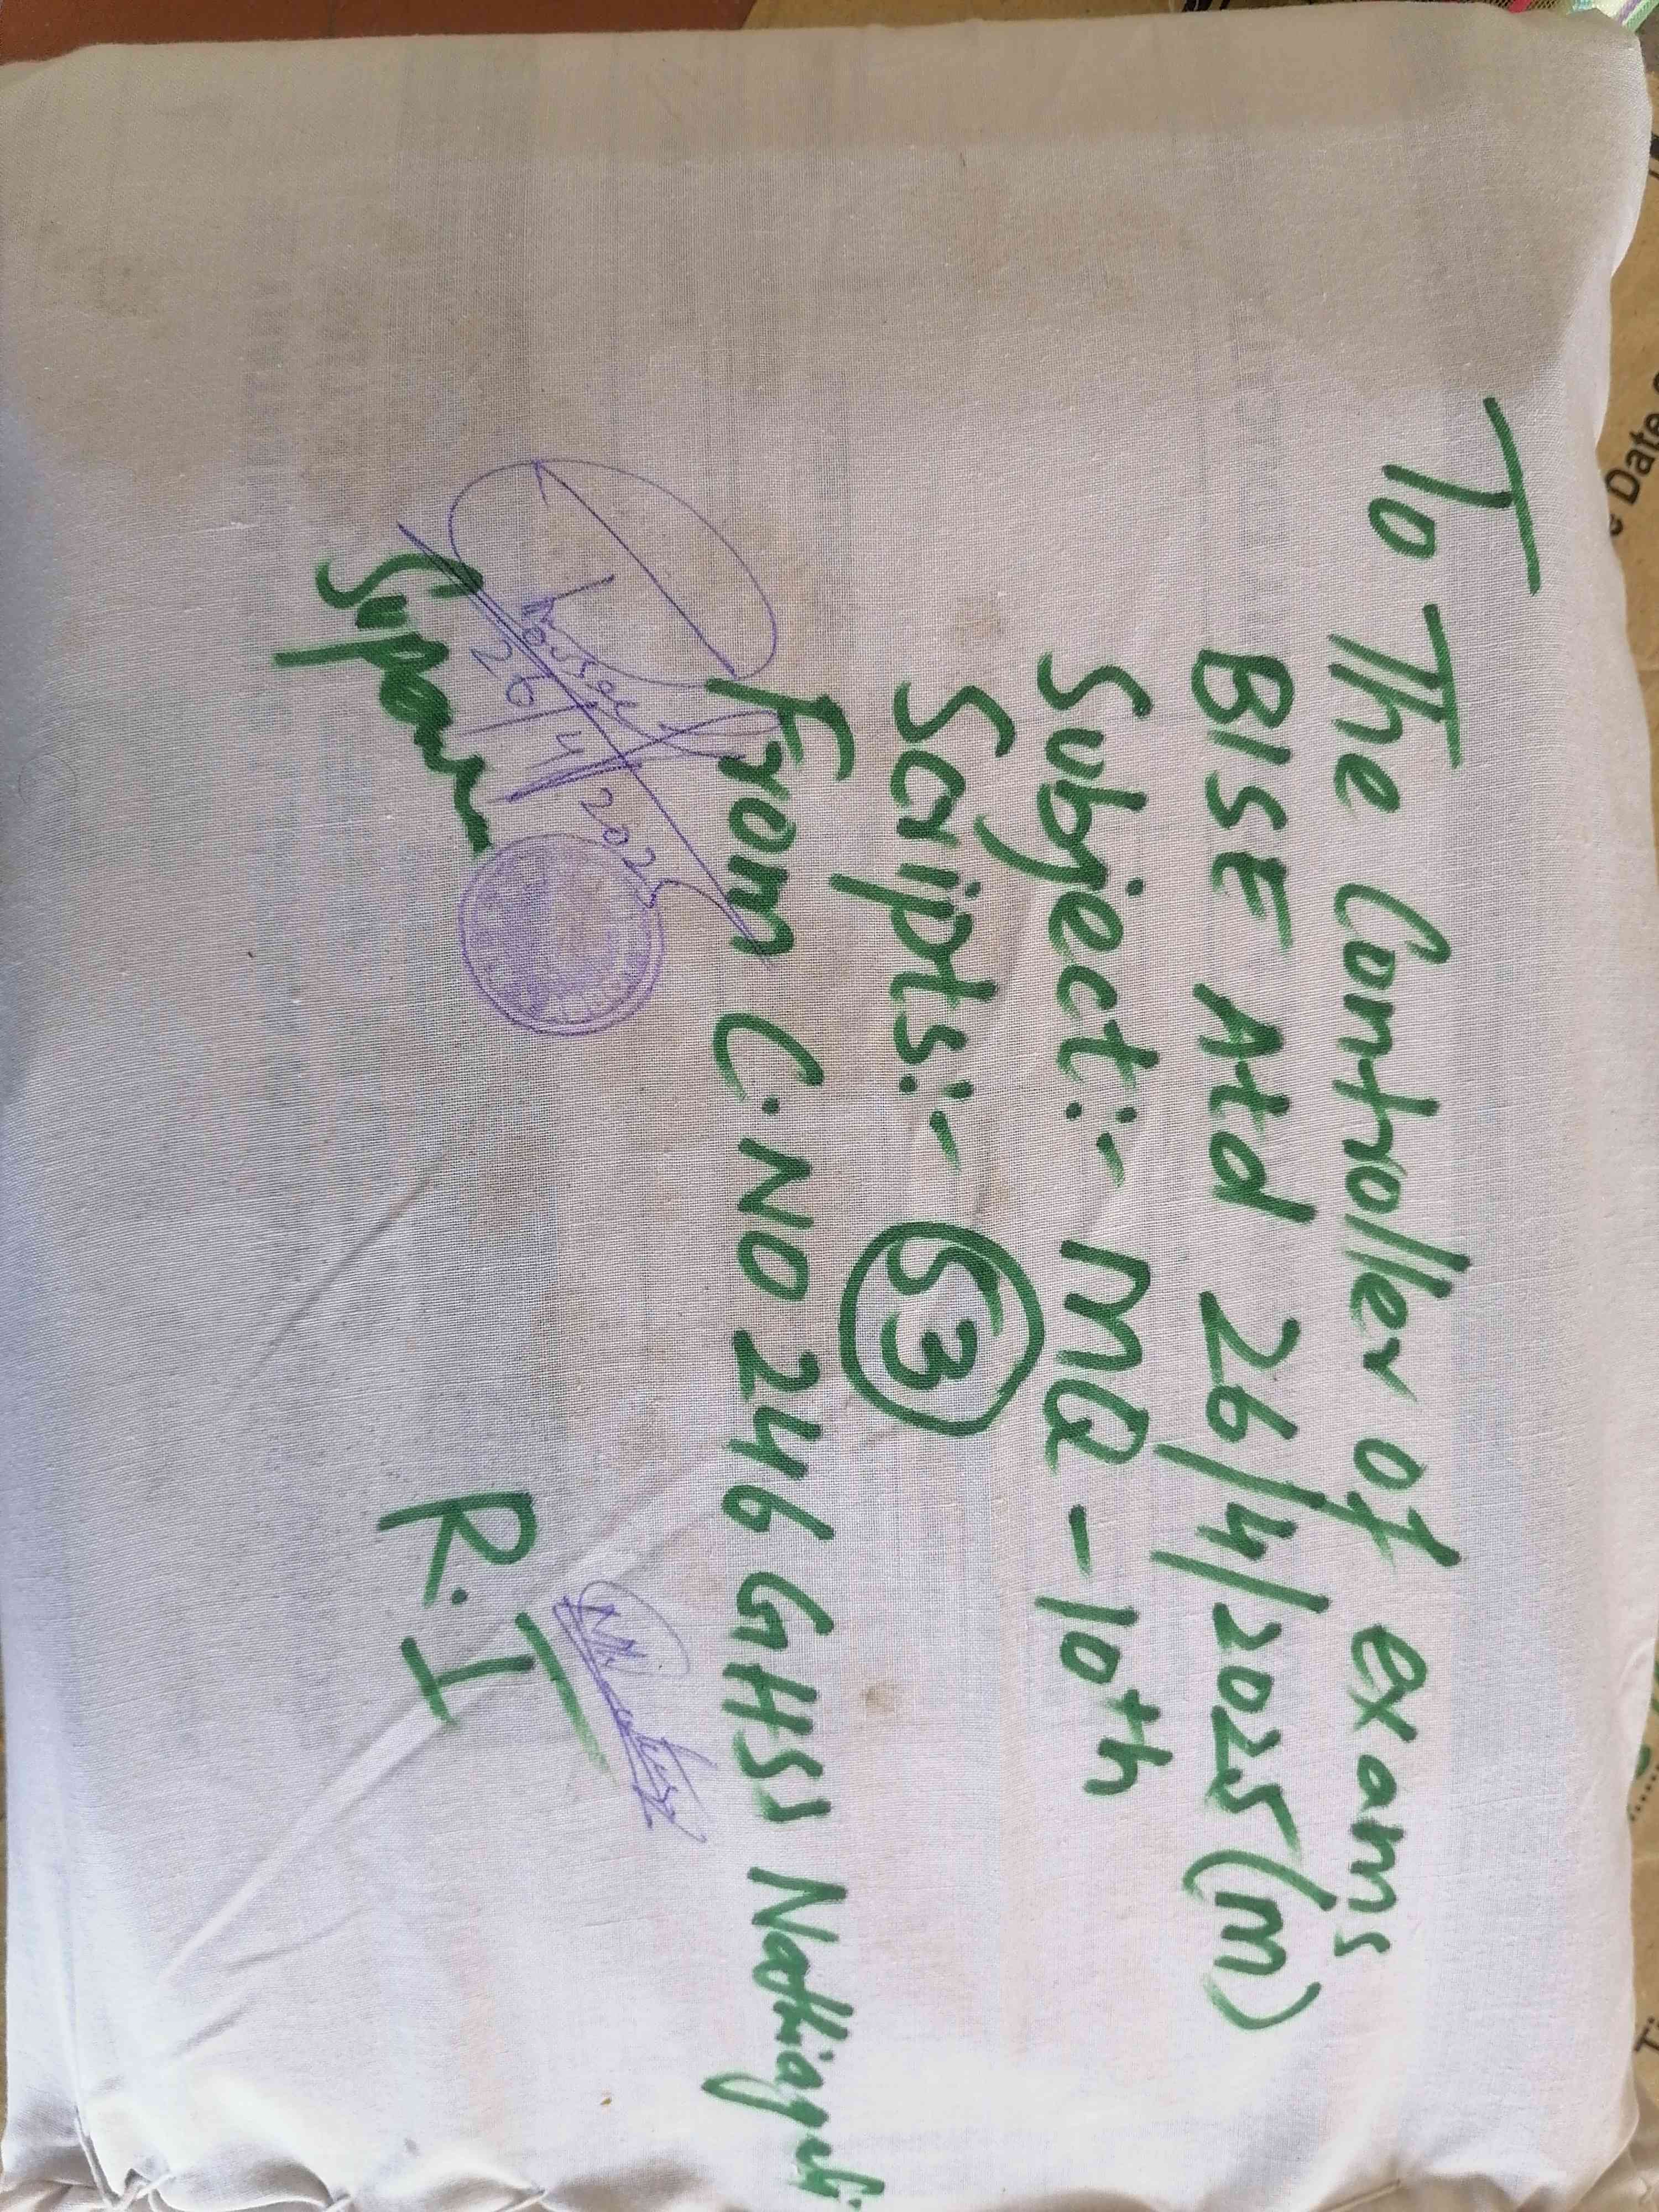 To The Controller of exams
BISE Atd 26/4/2025 (M)
Subject:- MQ - 10th
Scripts:- 53
From C.NO 246 GHSS Nathiagali
26/4/2025
Super
R.I
Date